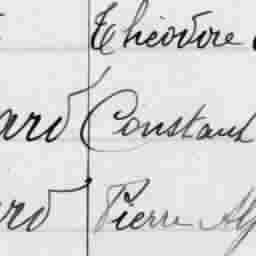 Théodore
ard Constant
ard Pierre Alf